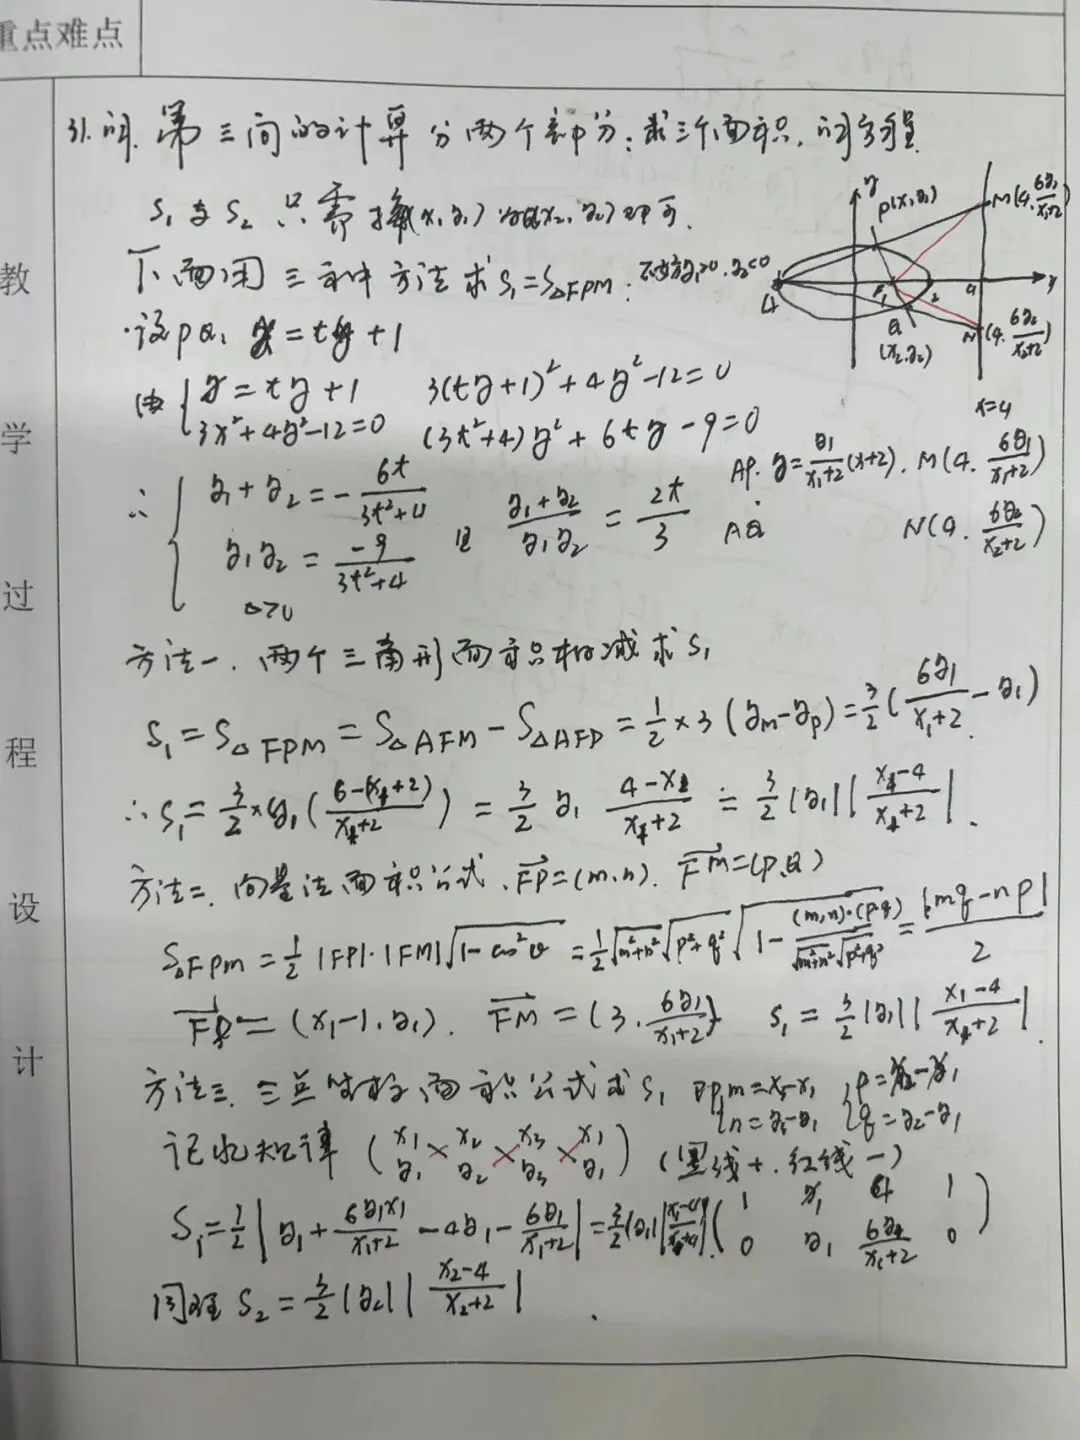 重点难点
教学过程设计
31. 第三问的计算分两个部分:求三个面积,
S₁与S₂只需换(x₁,y₁)为(x₂,y₂)即可.
下面用三种方法求S₁=S△FPM:不妨y₁>0.y₂<0
y
P(x₁,y₁)
M(4,6y₁/(x₁+2))
A
F
1
2
4
Q
(x₂,y₂)
N(4,6y₂/(x₂+2))
x=4
·设PQ: x=ty+1
由{x=ty+1 3(ty+1)²+4y²-12=0
3x²+4y²-12=0 (3t²+4)y²+6ty-9=0
∴{y₁+y₂=-6t/(3t²+4)
y₁y₂=-9/(3t²+4)
△>0
且 (y₁+y₂)/(y₁y₂)=2t/3
AP. y=y₁/(x₁+2)(x+2). M(4.6y₁/(x₁+2))
AQ N(4.6y₂/(x₂+2))
方法一.两个三角形面积相减求S₁
S₁=S△FPM=S△AFM-S△AFP=1/2×3(ym-yp)=3/2(6y₁/(x₁+2)-y₁)
∴S₁=3/2×y₁(6-(x₁+2)/(x₁+2))=3/2 y₁ (4-x₁)/(x₁+2)=3/2|y₁||(x₁-4)/(x₁+2)|.
方法二.向量法面积公式.FP=(m,n). FM=(p,q)
S△FPM=1/2|FP|·|FM|√(1-cos²θ)=1/2√(m²+n²)√(p²+q²)√(1-(m,n)·(p,q)/(√(m²+n²)√(p²+q²)))=|mq-np|/2
FP=(x₁-1,y₁). FM=(3,6y₁/(x₁+2)) S₁=3/2|y₁||(x₁-4)/(x₁+2)|.
方法三.三点坐标面积公式求S₁ 即{m=x₃-x₁ {p=x₂-x₁
n=y₃-y₁ q=y₂-y₁
记忆规律(x₁ x₂ x₃ x₁
y₁ y₂ y₃ y₁)(黑线+.红线-)
S₁=1/2|y₁+6y₁x₁/(x₁+2)-4y₁-6y₁/(x₁+2)|=3/2|y₁||(x₁-4)/(x₁+2)|.(1 x₁ 4 1
0 y₁ 6y₁/(x₁+2) 0)
同理S₂=3/2|y₂||(x₂-4)/(x₂+2)|.